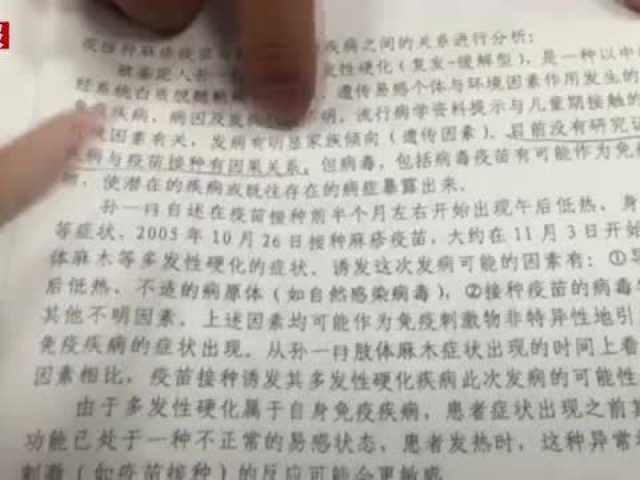 报
疫接种麻疹疫苗与 疾病之间的关系进行分析：
被鉴定人孙一 发性硬化（复发-缓解型），是一种以中
经系统白质脱髓鞘 遗传易感个体与环境因素作用发生的
疾病，病因及发病 不明，流行病学资料提示与儿童期接触的
因素有关，发病有明显家族倾向（遗传因素）。目前没有研究证
疾病与疫苗接种有因果关系。但病毒，包括病毒疫苗有可能作为免疫
，使潜在的疾病或既往存在的病症暴露出来。
孙一 自述在疫苗接种前半个月左右开始出现午后低热、身
等症状，2005 年 10 月 26 日接种麻疹疫苗，大约在 11 月 3 日开始
体麻木等多发性硬化的症状。诱发这次发病可能的因素有：①
后低热、不适的病原体（如自然感染病毒），②接种疫苗的病毒
其他不明因素。上述因素均可能作为免疫刺激物非特异性地引
免疫疾病的症状出现。从孙一 肢体麻木症状出现的时间上看
因素相比，疫苗接种诱发其多发性硬化疾病此次发病的可能性
由于多发性硬化属于自身免疫疾病，患者症状出现之前其
功能已处于一种不正常的易感状态，患者发热时，这种异常
刺激（如疫苗接种）的反应可能会更敏感